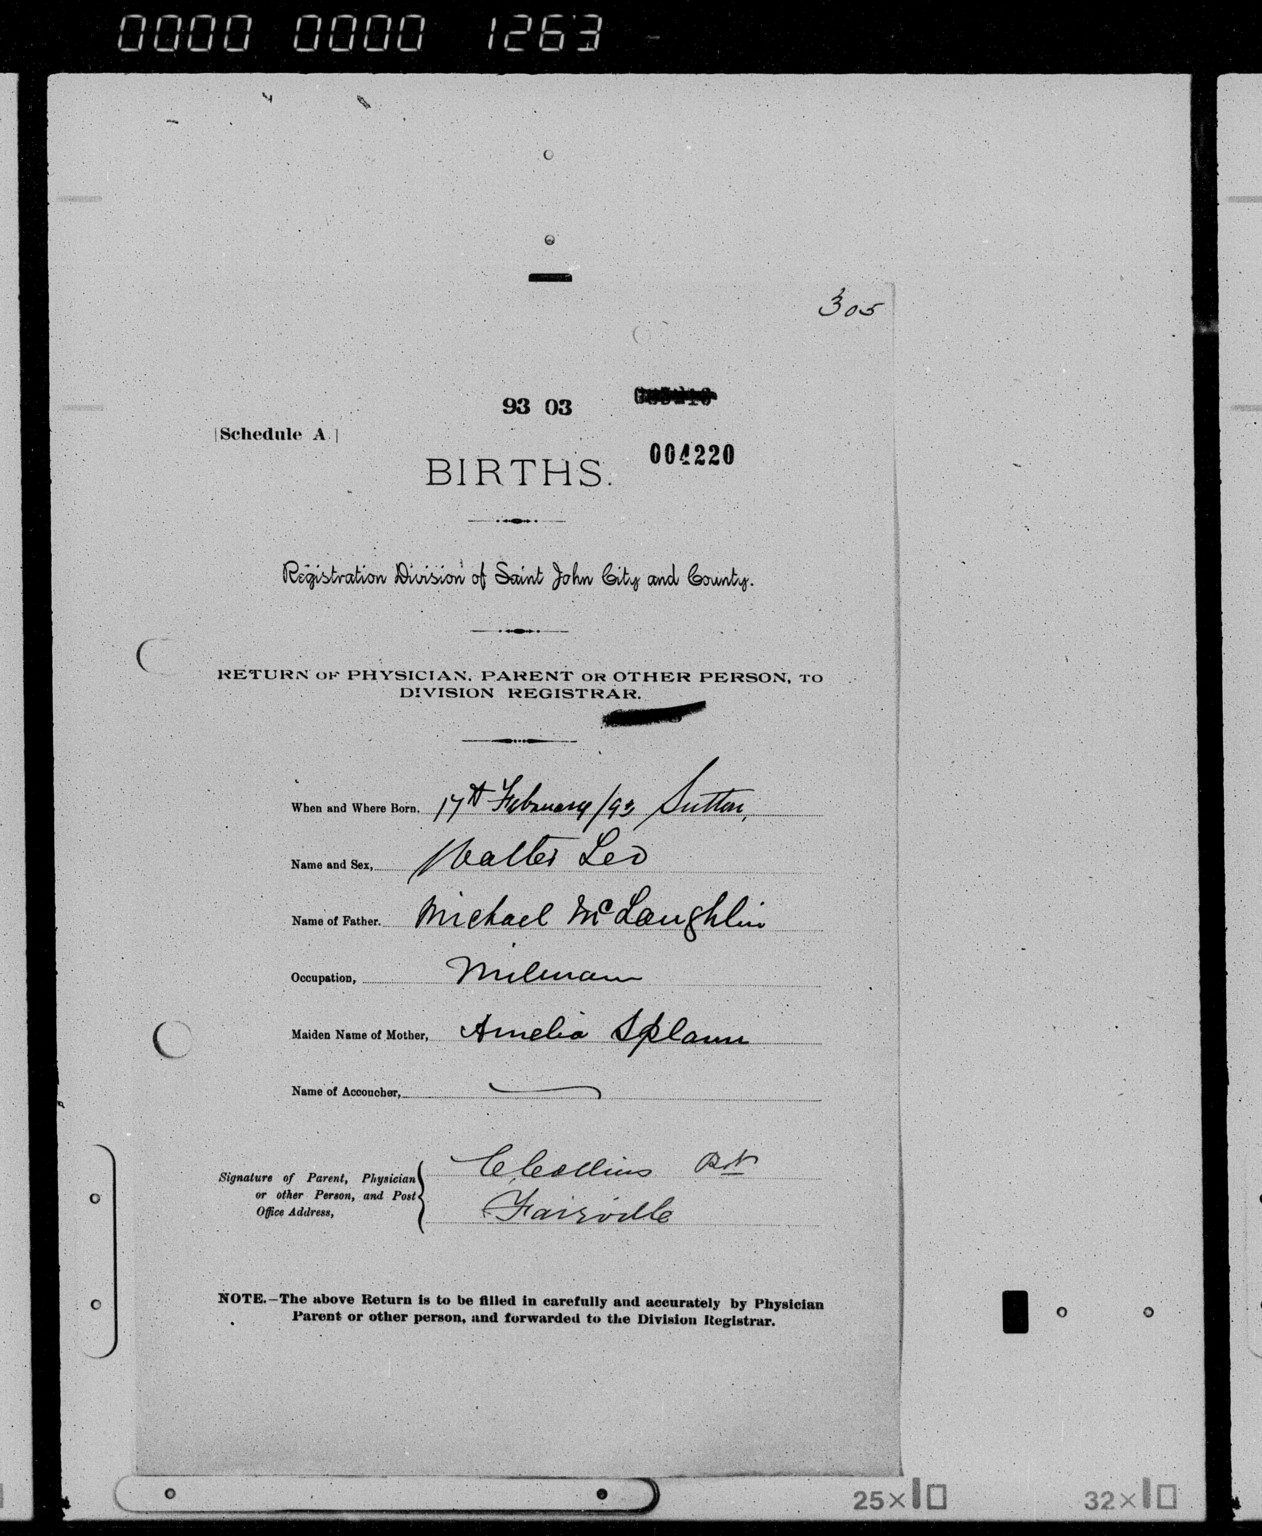 0000 0000 1263
305
93 03
[Schedule A.]
004220
BIRTHS.
Registration Division of Saint John City and County.
RETURN OF PHYSICIAN, PARENT OR OTHER PERSON, TO
DIVISION REGISTRAR.
When and Where Born, 17th February /93 Sutton,
Name and Sex, Walter Leo
Name of Father. Michael McLaughlin
Occupation, Milman
Maiden Name of Mother, Amelia Splann
Name of Accoucher,
Signature of Parent, Physician
or other Person, and Post
Office Address,
C. Collins
Fairville
NOTE.—The above Return is to be filled in carefully and accurately by Physician
Parent or other person, and forwarded to the Division Registrar.
25× 32×